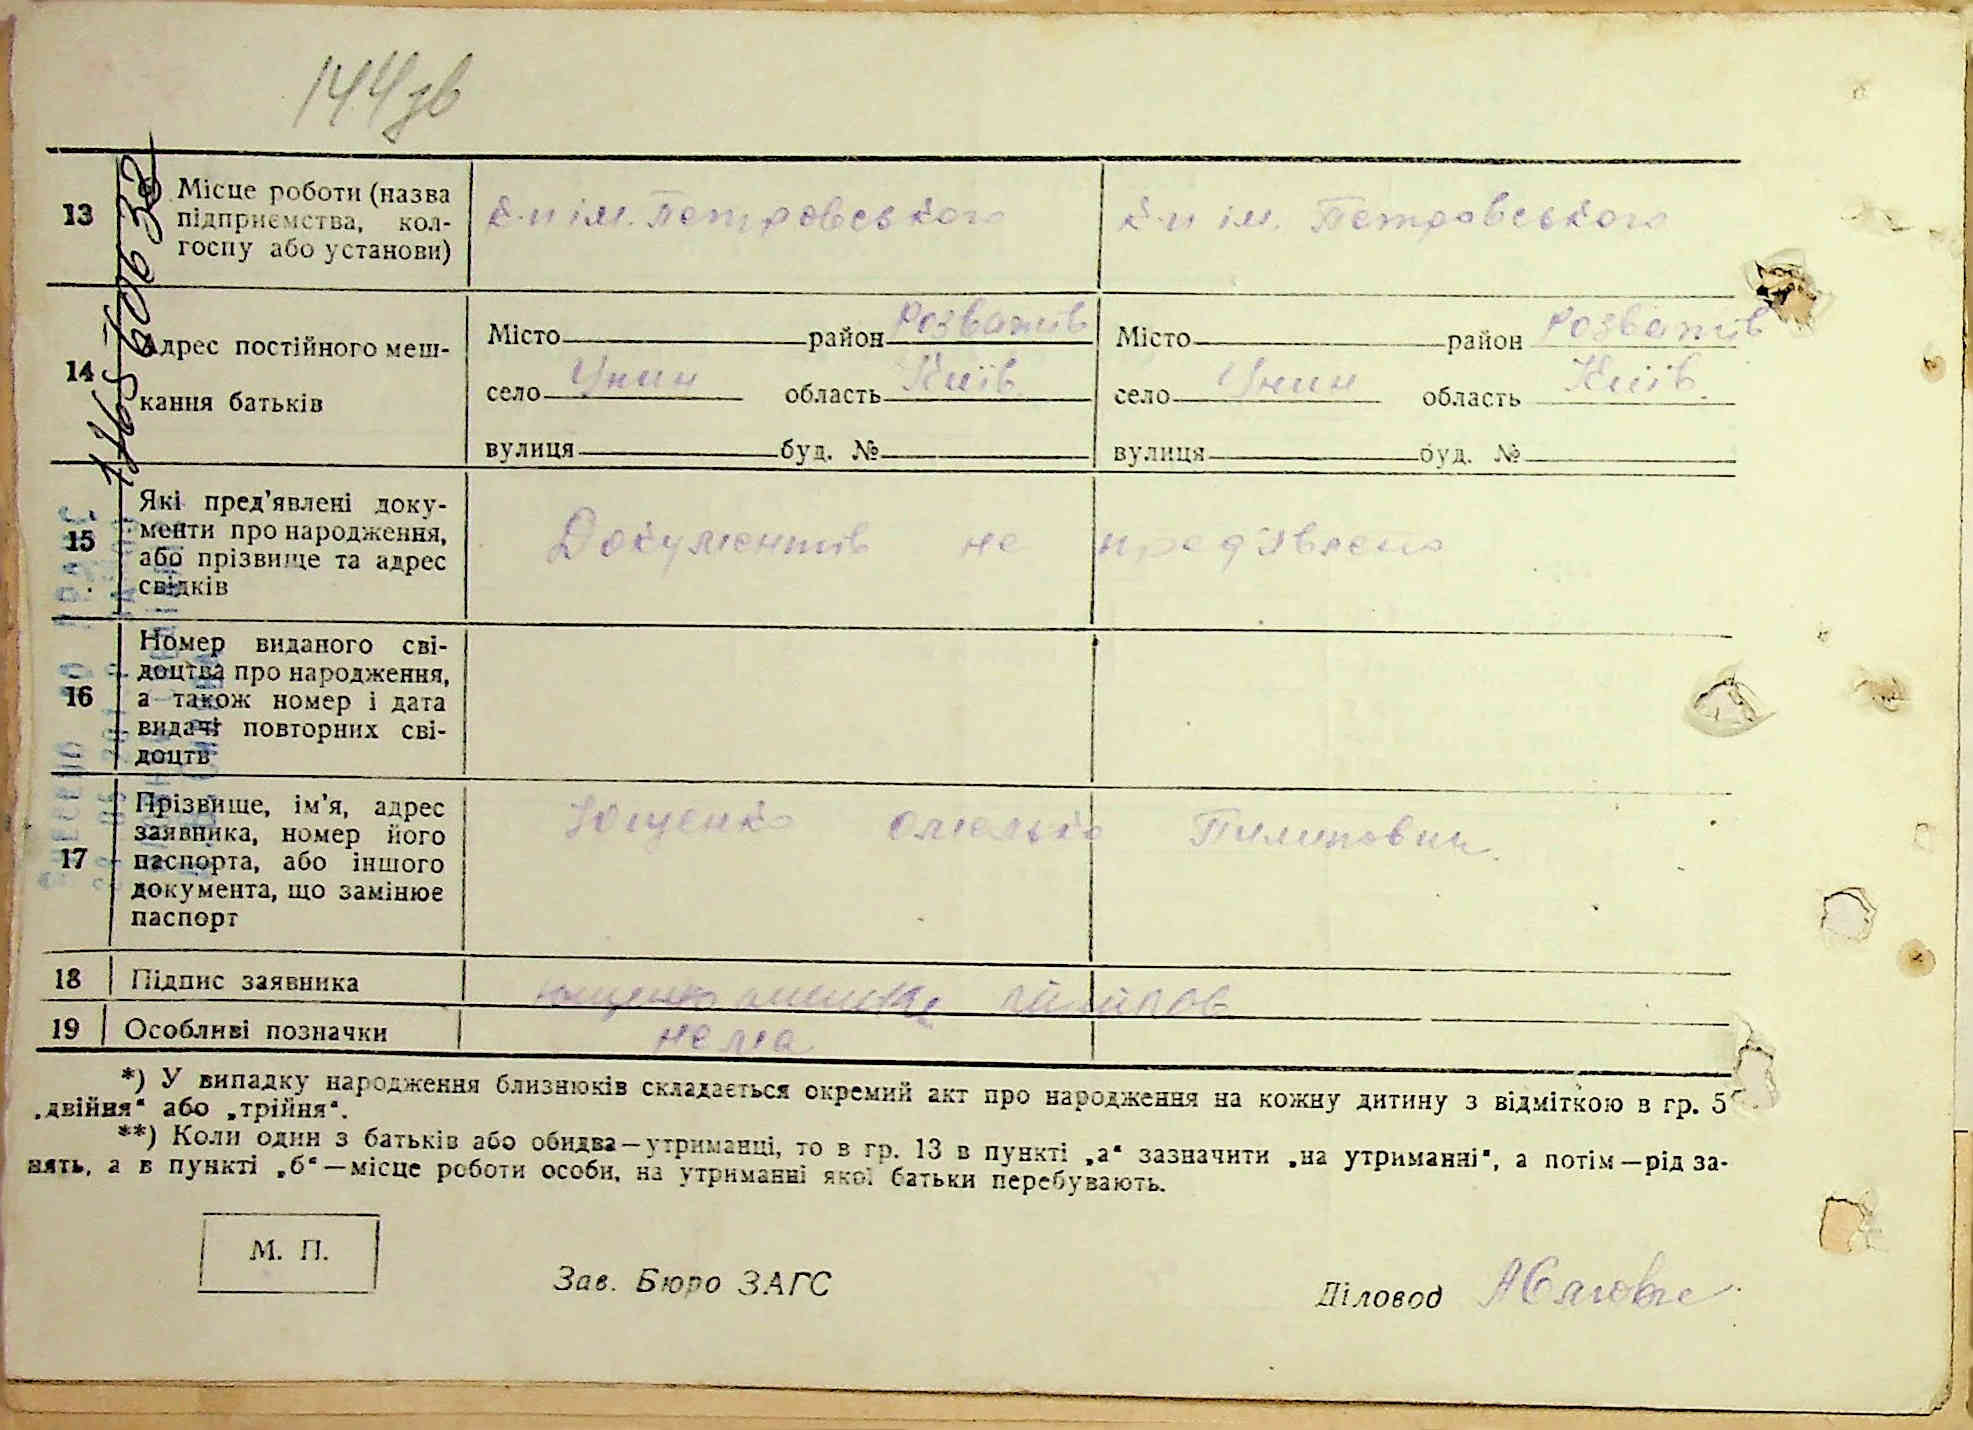 144зв
13
Місце роботи (назва
підприємства, кол-
госпу або установи)
к-п ім. Петровського
к-п ім. Петровського
14
Адрес постійного меш-
кання батьків
Місто район Розважів
село Унин область Київ
вулиця буд. №
Місто район Розважів
село Унин область Київ.
вулиця буд. №
15
Які пред'явлені доку-
менти про народження,
або прізвище та адрес
свідків
Документів не пред'явлено
16
Номер виданого сві-
доцтва про народження,
а також номер і дата
видачі повторних сві-
доцтв
17
Прізвище, ім'я, адрес
заявника, номер його
паспорта, або іншого
документа, що замінює
паспорт
Ющенко Омелько Пилипович.
18
Підпис заявника
Ющенко
19
Особливі позначки
нема
*) У випадку народження близнюків складається окремий акт про народження на кожну дитину з відміткою в гр. 5
„двійня" або „трійня".
**) Коли один з батьків або обидва—утриманці, то в гр. 13 в пункті „а" зазначити „на утриманні", а потім—рід за-
нять, а в пункті „б"—місце роботи особи, на утриманні якої батьки перебувають.
М. П.
Зав. Бюро ЗАГС
Діловод